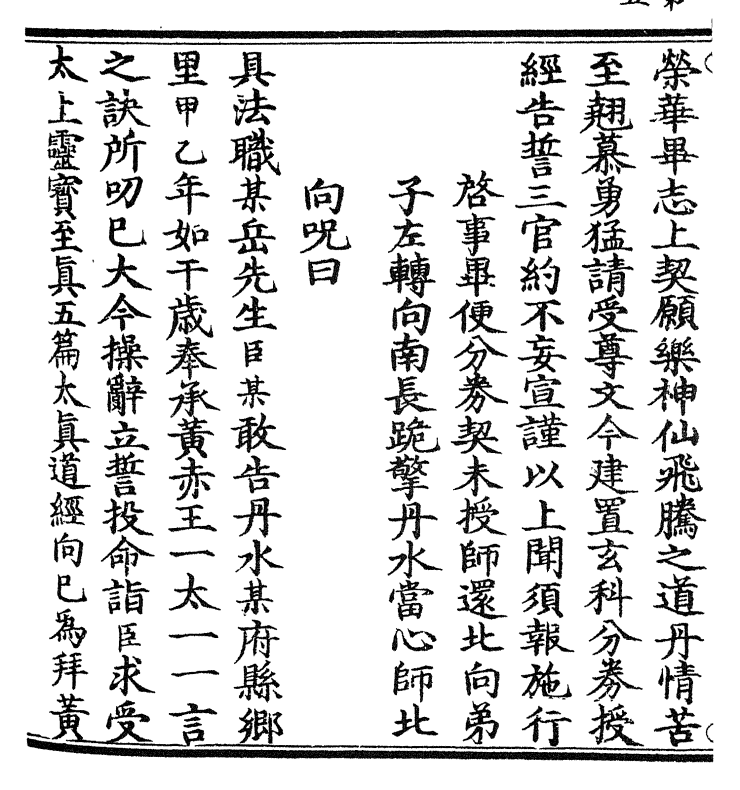 榮華畢志上契願樂神仙飛騰之道丹情苦
至翹慕勇猛請受尊文今建置玄科分券授
經告誓三官約不妄宣謹以上聞須報施行
啓事畢便分券契未授師還北向弟
子左轉向南長跪擎丹水當心師北
向呪曰
具法職某岳先生臣某敢告丹水某府縣鄉
里甲乙年如干歲奉承黃赤王一太一一言
之訣所叨巳大今操辭立誓投命詣臣求受
太上靈寳至眞五篇太眞道經向巳爲拜黃